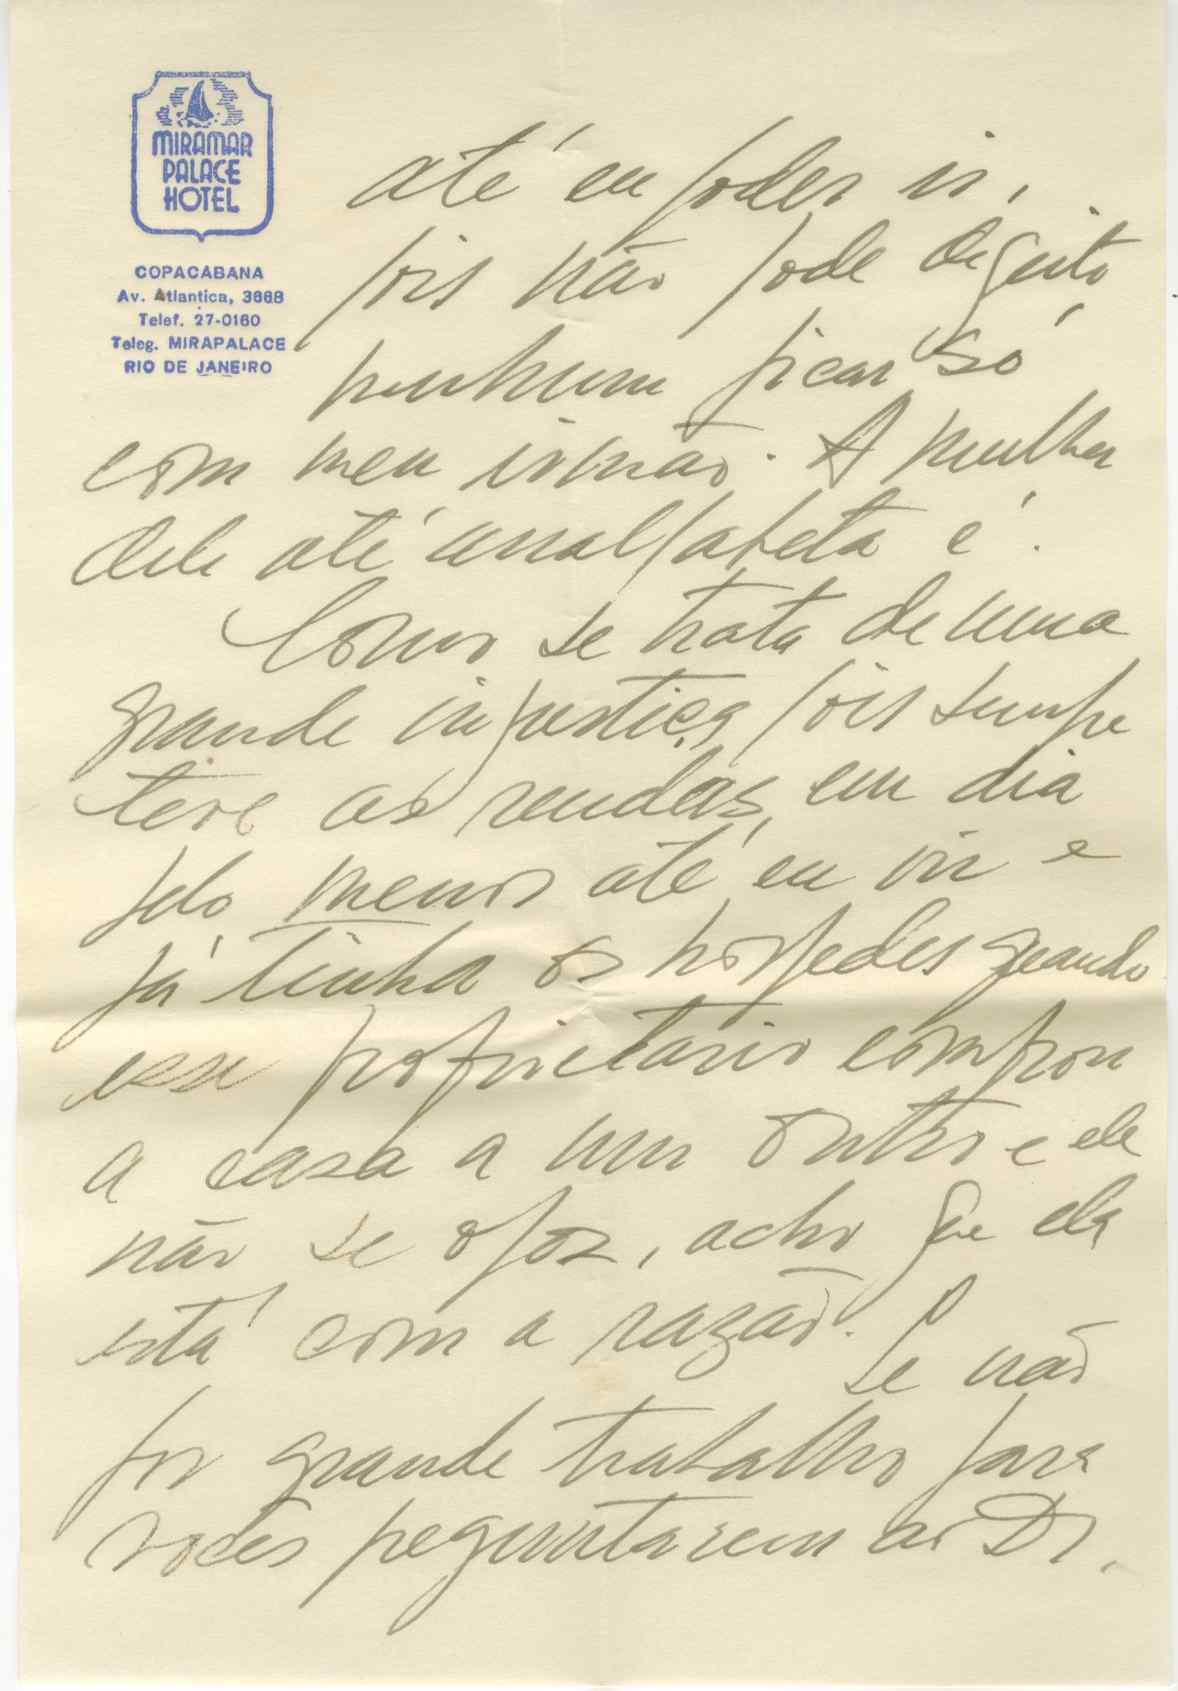 MIRAMAR
PALACE
HOTEL
COPACABANA
Av. Atlantica, 3668
Telef. 27-0160
Teleg. MIRAPALACE
RIO DE JANEIRO
até eu poder ir,
pois não pode de jeito
nenhum ficar só
com meu irmão. A mulher
dele até analfabeta é.
Como se trata de uma
grande injustiça pois sempre
teve as rendas, em dia
pelo menos até eu vir e
já tinha os hospedes quando
esse proprietario comprou
a casa a um outro e ele
não se opoz, acho que ela
está com a razão. Se não
for grande trabalho para
vocês perguntarem ao Dr.